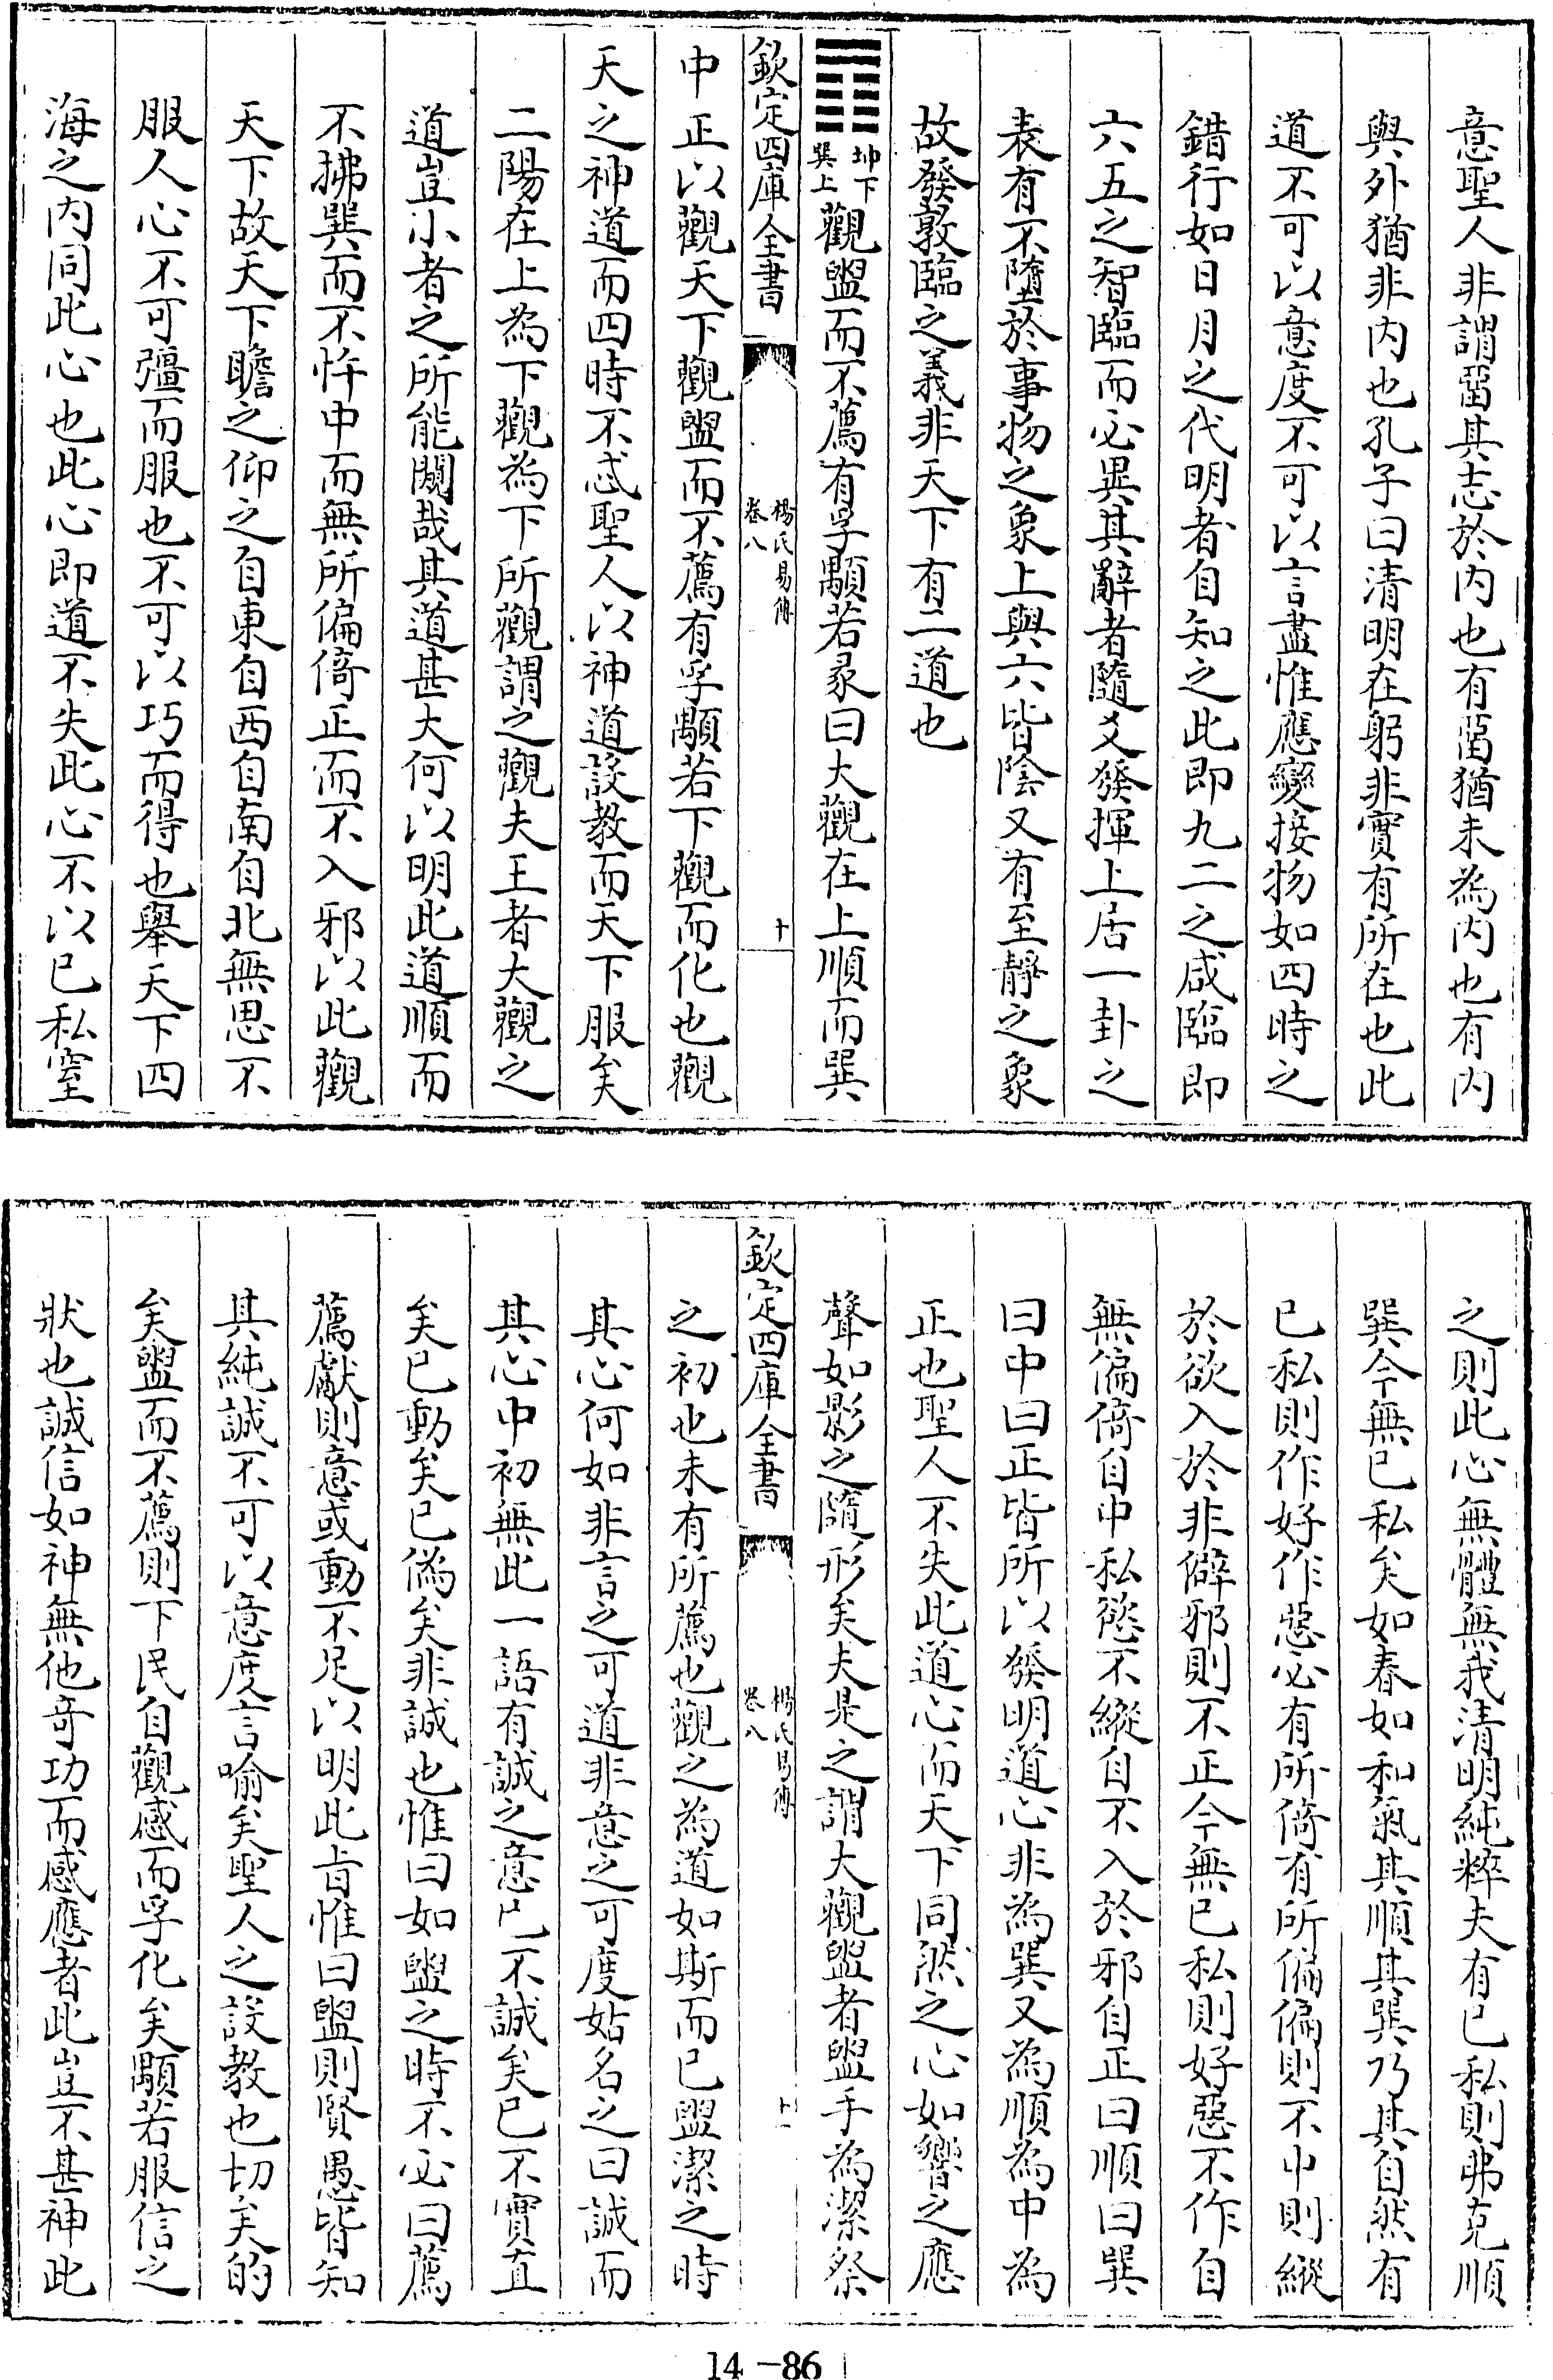 意聖人非謂畱其志於内也有畱猶未為内也有内
與外猶非内也孔子曰清明在躬非實有所在也此
道不可以意度不可以言盡惟應變接物如四時之
錯行如日月之代明者自知之此即九二之咸臨即
六五之智臨而必異其辭者隨爻發揮上居一卦之
表有不墮於事物之象上與六皆陰又有至靜之象
故發敦臨之義非天下有二道也
䷓坤下巽上觀盥而不薦有孚顒若彖曰大觀在上順而巽
欽定四庫全書 楊氏易傳 卷八 十
中正以觀天下觀盥而不薦有孚顒若下觀而化也觀
天之神道而四時不忒聖人以神道設教而天下服矣
二陽在上為下觀為下所觀謂之觀夫王者大觀之
道豈小者之所能闚哉其道甚大何以明此道順而
不拂巽而不忤中而無所偏倚正而不入邪以此觀
天下故天下瞻之仰之自東自西自南自北無思不
服人心不可彊而服也不可以巧而得也舉天下四
海之内同此心也此心即道不失此心不以已私窒
之則此心無體無我清明純粹夫有已私則弗克順
巽今無已私矣如春如和氣其順其巽乃其自然有
已私則作好作惡必有所倚有所偏偏則不中則縱
於欲入於非僻邪則不正今無已私則好惡不作自
無偏倚自中私慾不縱自不入於邪自正曰順曰巽
曰中曰正皆所以發明道心非為巽又為順為中為
正也聖人不失此道心而天下同然之心如響之應
聲如影之隨形矣夫是之謂大觀盥者盥手為潔祭
欽定四庫全書 楊氏易傳 卷八 十一
之初也未有所薦也觀之為道如斯而已盥潔之時
其心何如非言之可道非意之可度姑名之曰誠而
其心中初無此一語有誠之意已不誠矣已不實直
矣已動矣已偽矣非誠也惟曰如盥之時不必曰薦
薦獻則意或動不足以明此旨惟曰盥則賢愚皆知
其純誠不可以意度言喻矣聖人之設教也切矣的
矣盥而不薦則下民自觀感而孚化矣顒若服信之
狀也誠信如神無他奇功而感應者此豈不甚神此
14-86